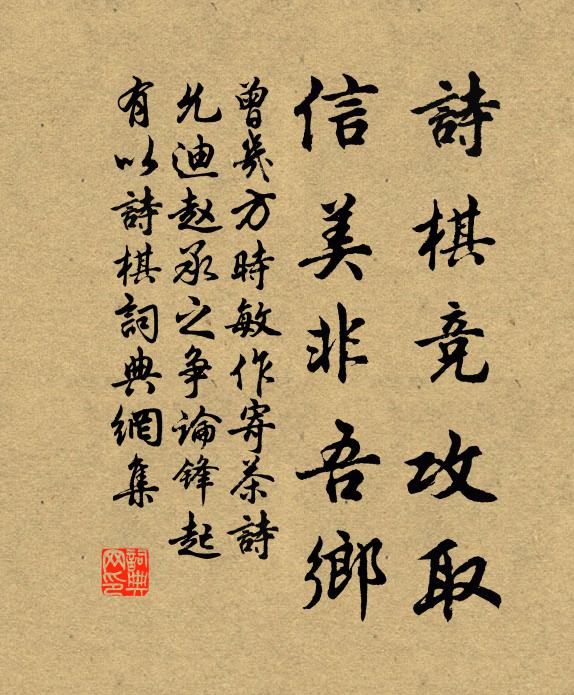 詩棋竞攻取
信美非吾鄉
曾幾方時敏作寄茶詩
允迪赵承之争論鋒起
有以詩棋詞典網集
詞典
网印